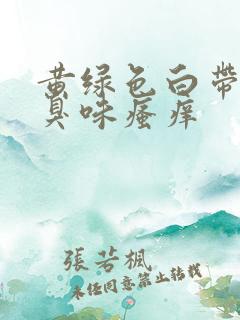 黄绿色白带
臭味瘙痒
張若楓
未经同意禁止转载